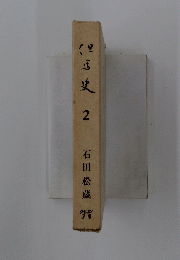 但馬史
2
石田松蔵